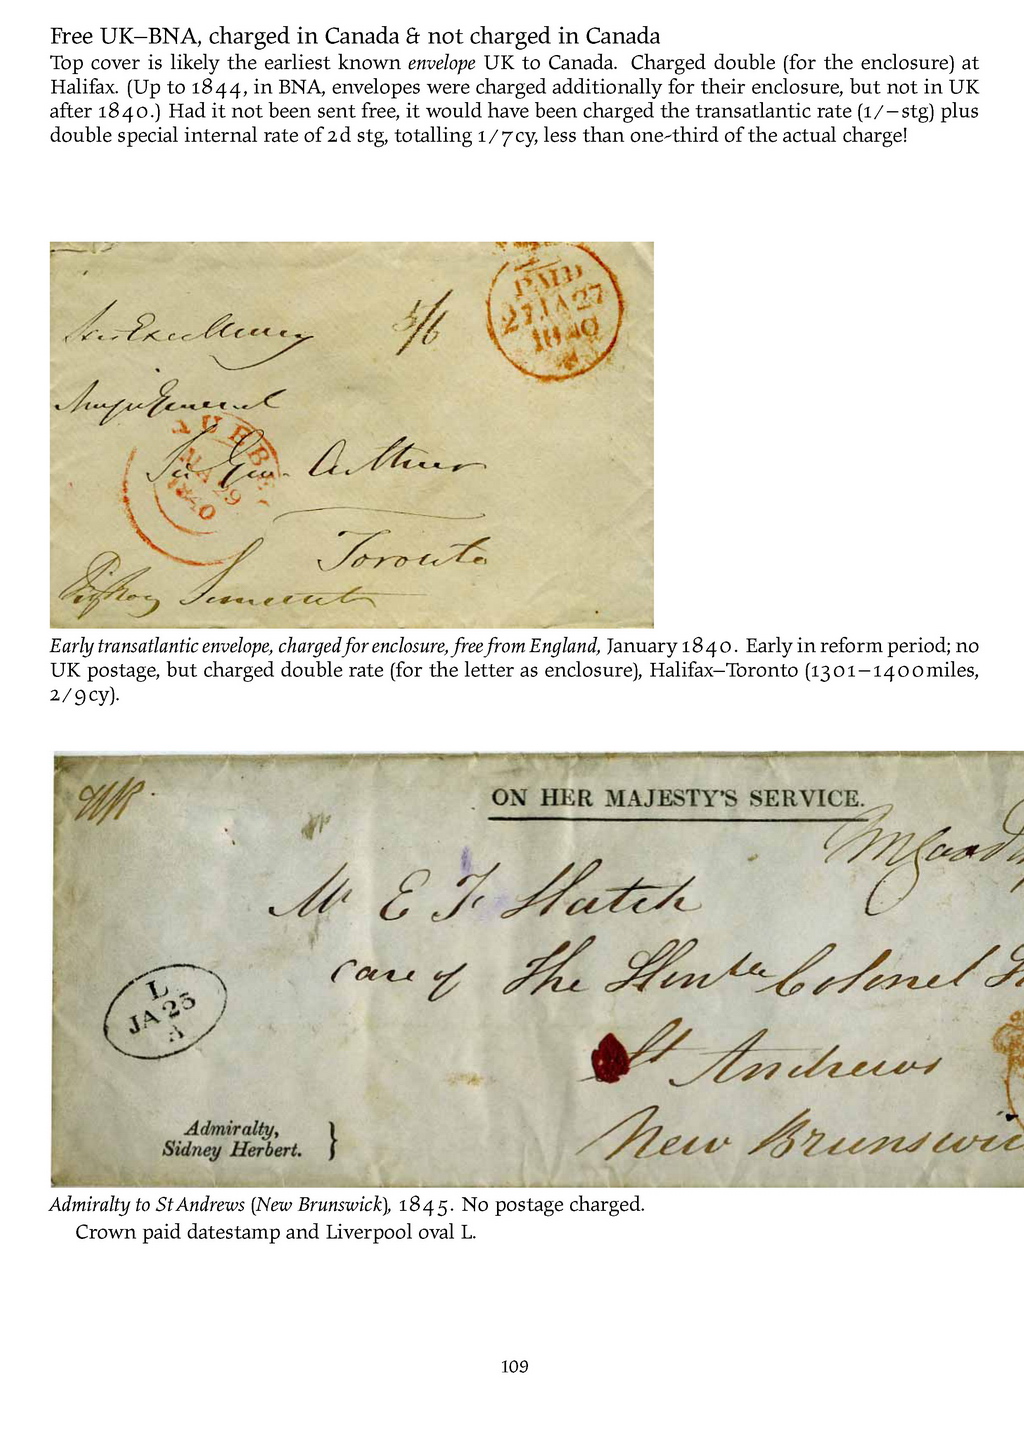 Free UK–BNA, charged in Canada & not charged in Canada
Top cover is likely the earliest known envelope UK to Canada. Charged double (for the enclosure) at
Halifax. (Up to 1844, in BNA, envelopes were charged additionally for their enclosure, but not in UK
after 1840.) Had it not been sent free, it would have been charged the transatlantic rate (1/–stg) plus
double special internal rate of 2d stg, totalling 1/7cy, less than one-third of the actual charge!
PAID
27 JA 27
1840
His Excellency
5/6
Major General
QUEBEC
MA 29
1840
Sir Geo. Arthur
Toronto
Fitzroy Somerset
Early transatlantic envelope, charged for enclosure, free from England, January 1840. Early in reform period; no
UK postage, but charged double rate (for the letter as enclosure), Halifax–Toronto (1301–1400miles,
2/9cy).
ON HER MAJESTY'S SERVICE.
Mr E F Hatch
care of The Honble Colonel
St Andrews
New Brunswic
L
JA 25
A
Admiralty,
Sidney Herbert. }
Admiralty to St Andrews (New Brunswick), 1845. No postage charged.
Crown paid datestamp and Liverpool oval L.
109